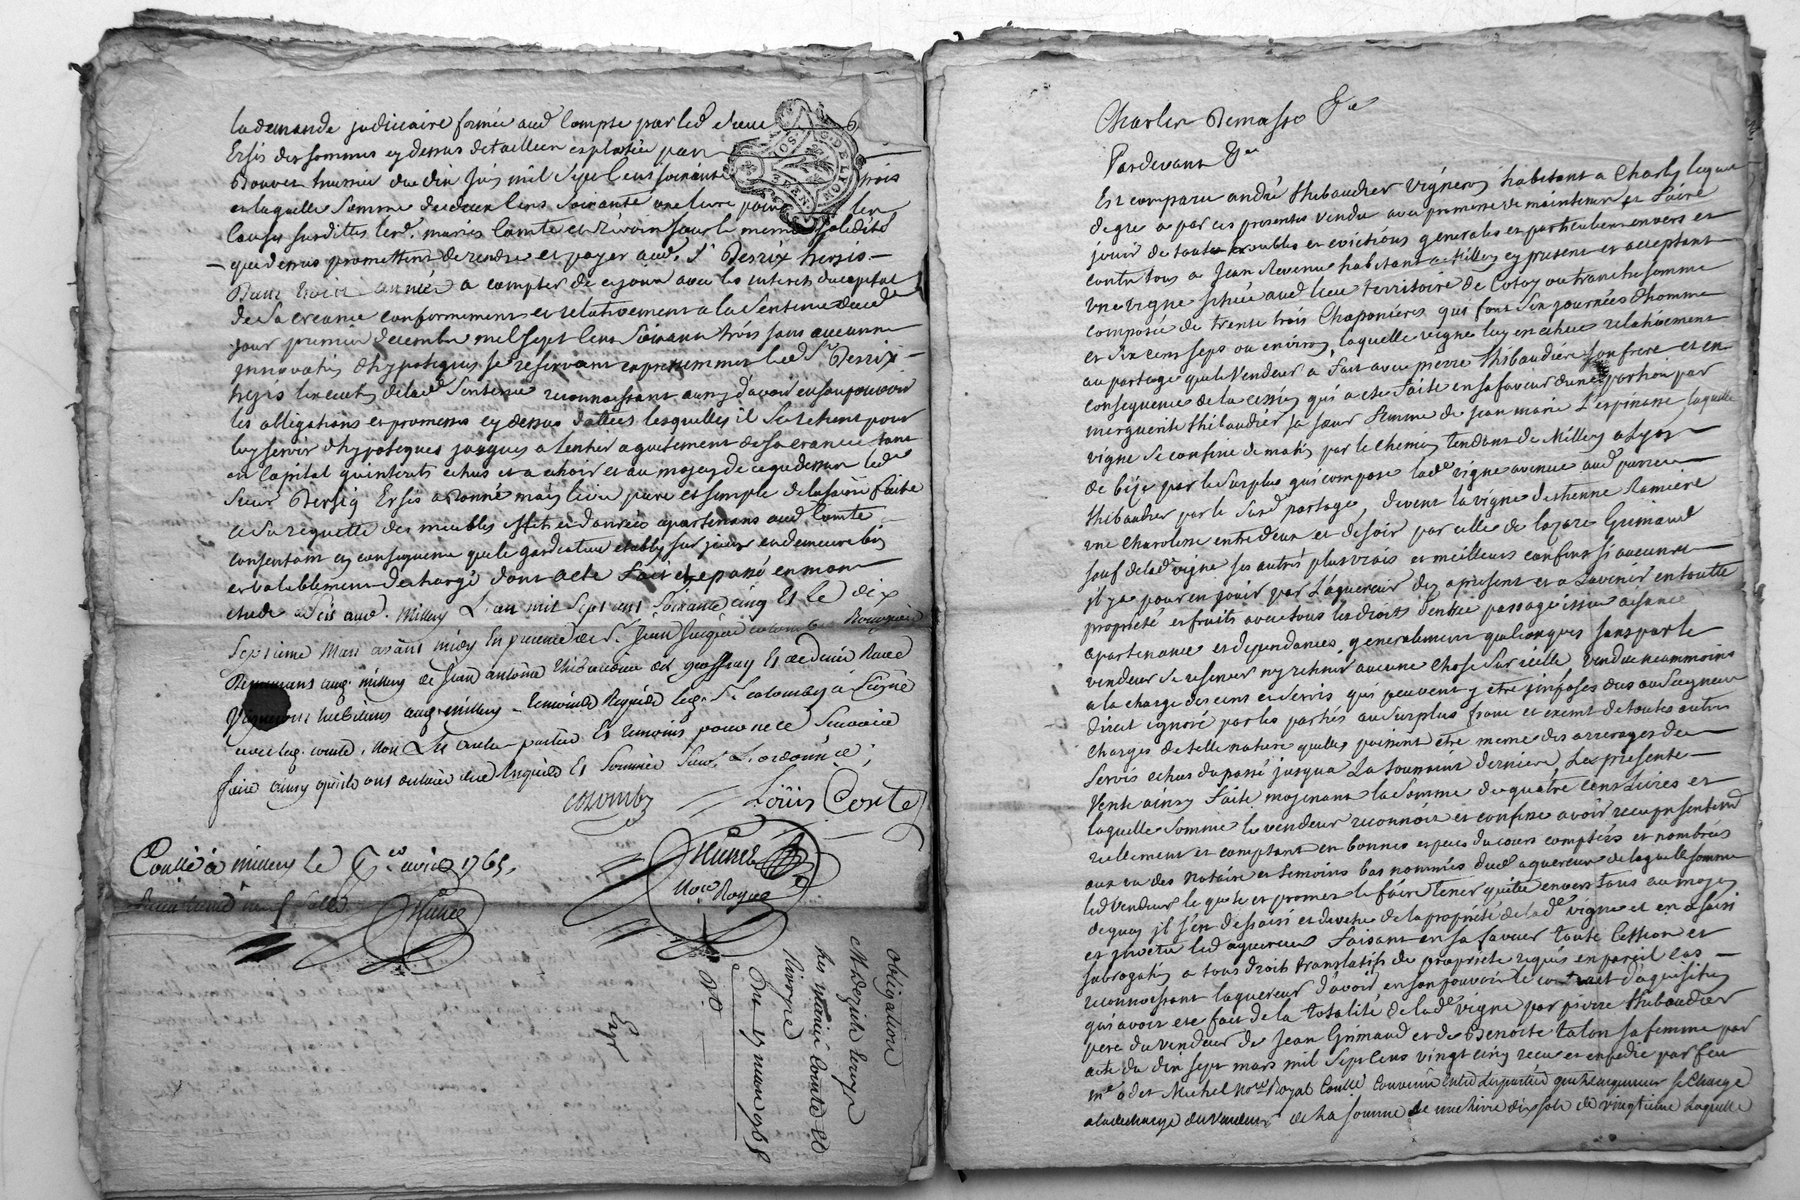 la demande judiciaire formée aud Comte par led sieur
Ersis des sommes cy dessus detaillées exploitée par
Bouvet huissier du dix juin mil sept cens soixante trois
et laquelle somme de deux cens soixante une livre pour les
causes susdittes led. mariés Comte et Rivoire sous la meme solidité
que dessus promettent de rendre et payer aud. Sr
Dans trois années a compter de ce jour avec les interets du capital
de sa creance conformement et relativement a la Sentence dud
jour premier decembre mil sept cens soixante trois sans aucune
innovation d'hypoteques se reservant expressemment led Sr
de lad Sentence reconnoissant aussy d'avoir en son pouvoir
les obligations et promesses cy dessus dattées lesquelles il se retient pour
luy servir d'hypoteques jusques a l'entier aquitement de sa creance tant
en capital qu'interets echus et a echoir et au moyen de ce que dessus led
Sieur Ersis a donné main levée pure et simple de la saisie faite
a sa requette des meubles effets et danrées apartenans aud. Comte
consentant en consequence que le gardiateur etably sur iceux en demeure bien
et valablement dechargé dont acte fait et passé en mon
etude aud. millery L'an mil sept cens soixante cinq Et le dix
Septieme Mars avant midy En presence de Sr. Jean
Demeurans aud. millery de Jean antoine thibaudier
Vignerons habitans aud. millery temoins Requis led. Sr. Colomby a Signé
avec led. Comte, non Les autres parties Et temoins pour ne le Scavoir
faire ainsy qu'ils ont declaré de ce Enquis Et Sommés Suiv. L'ordonnce;
colomby Loüis Conte
Collé à millery le avril 1765.
Nore Royal
obligation
Du 17 mars 1765
Exp
Charles Demasso &a
Pardevant &a
Est comparu andré thibaudier Vigneron habitant a Charly lequel
degré a par ces presentes vendu avec promesse de maintenir et faire
jouir de toutes troubles et evictions generales et particulieres envers et
contre tous a Jean Revenu habitant a Millery cy present et acceptant
une vigne située aud lieu territoire de Cotoy ou tranchesomme
composée de trente trois Chaponières qui font six journées d'homme
et six cens seps ou environ, laquelle vigne luy en echue relativement
au partage que le Vendeur a fait avec pierre thibaudier son frere et en
consequence de la cession qui a eté faite en sa faveur d'une portion par
merguerite thibaudier sa sœur femme de Jean marie L'espinasse, laquelle
vigne se confine de matin par le chemin tendant de Millery a Lyon
de bize par le surplus qui compose lade vigne avenue aud pierre
thibaudier par le susd partage, de vent la vigne d'estienne Ramiere
une charoliere entre deux et de soir par celle de lazare Grimaud
sauf de lad vigne ses autres plus vrais et meilleurs confins si aucuns
il y a pour en jouir par L'aquereur des apresent et a L'avenir en toutte
propriété et fruits avec tous les droits d'entrée passage issue aisance
apartenance et dependances, generalement quelconques sans par le
vendeur se reserver ny retenir aucune chose sur icelle, Vendue neammoins
a la charge des cens et servis qui peuvent y etre imposés dus au Seigneur
direct ignoré par les parties au surplus franc et exempt de toutes autres
charges de telle nature quelles puissent etre meme des arrerages de
servis echus du passé jusqu'a La toussaint derniere, La presente
Vente ainsy faite mojenant la somme de quatre cens Livres et
laquelle somme le vendeur reconnoit et confesse avoir recu presentemt
reellement et comptant en bonnes especes du cours comptées et nombrées
aux vu des Notaire et temoins bas nommés dud aquereur de laquelle somme
led Vendeur le quitte et promet le faire tenir quitte envers tous au moyen
de quoy il s'en dessaisi et devetu de la propriété de lade vigne et en a saisi
et invetu led aquereur faisant en sa faveur toute Cession et
subrogation a tous droits translatifs de proprieté requis en pareil cas
reconnoissant laquereur d'avoir en son pouvoir le contract d'aquisition
qui avoit eté fait de la totalité de lade vigne par pierre thibaudier
pere du vendeur de Jean Grimaud et de Benoite talon sa femme par
acte du dix sept mars mil sept cens vingt cinq recu et expedié par feu
me Michel Nore Royal Collé Convenu entre les parties que Laquereur se charge
a la decharge du Vendeur de La somme de une livre dix sols de vingtieme laquelle